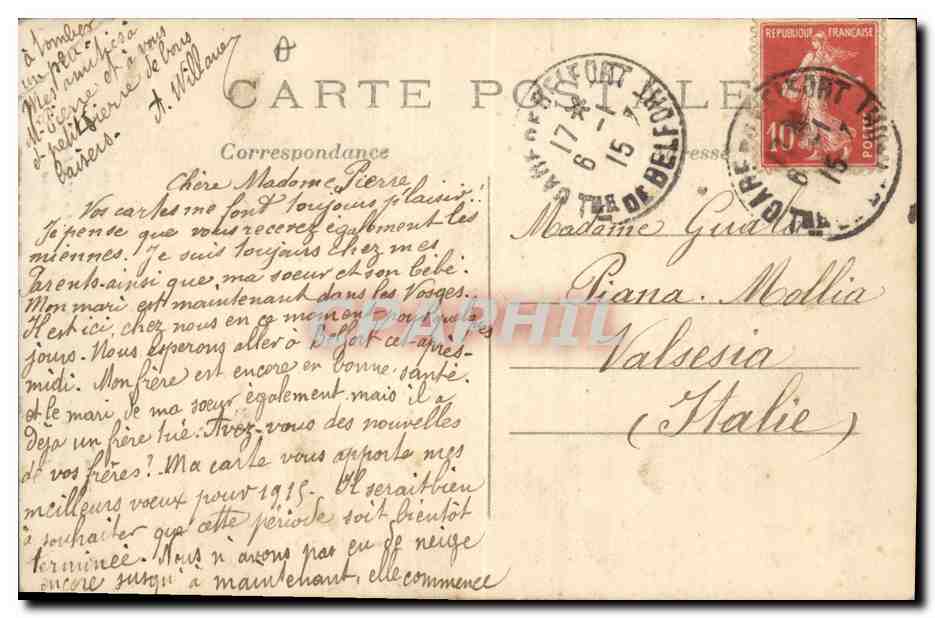 CARTE POSTALE
Correspondance
Chère Madame Pierre
Vos cartes me font toujours plaisir.
Je pense que vous recevez également les
miennes. Je suis toujours chez mes
Parents ainsi que ma soeur et son bébé.
Mon mari est maintenant dans les Vosges.
Il est ici, chez nous en ce moment pour quelques
jours. Nous esperons aller à Belfort cet après-
midi. Mon frère est encore en bonne santé
et le mari de ma soeur également mais il a
déja un frère tué. Avez-vous des nouvelles
de vos frères? Ma carte vous apporte mes
meilleurs voeux pour 1915. Il serait bien
à souhaiter que cette période soit bientôt
terminée. Nous n'avons pas eu de neige
encore jusqu'à maintenant, elle commence
à tomber
un peu.
Mes amitiés à
Mr Pierre et à vous
et petit Pierre de bons
baisers.
Madame
Piana. Mollia
Valsesia
(Italie)
REPUBLIQUE FRANÇAISE
10
POSTES
GARE DE BELFORT
17 *
6 -1
15
TRE DE BELFORT
GARE DE BELFORT
6 -1
15
CPARPHIL